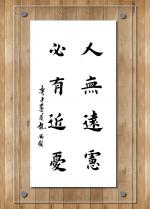 人無遠憲
必有近憂